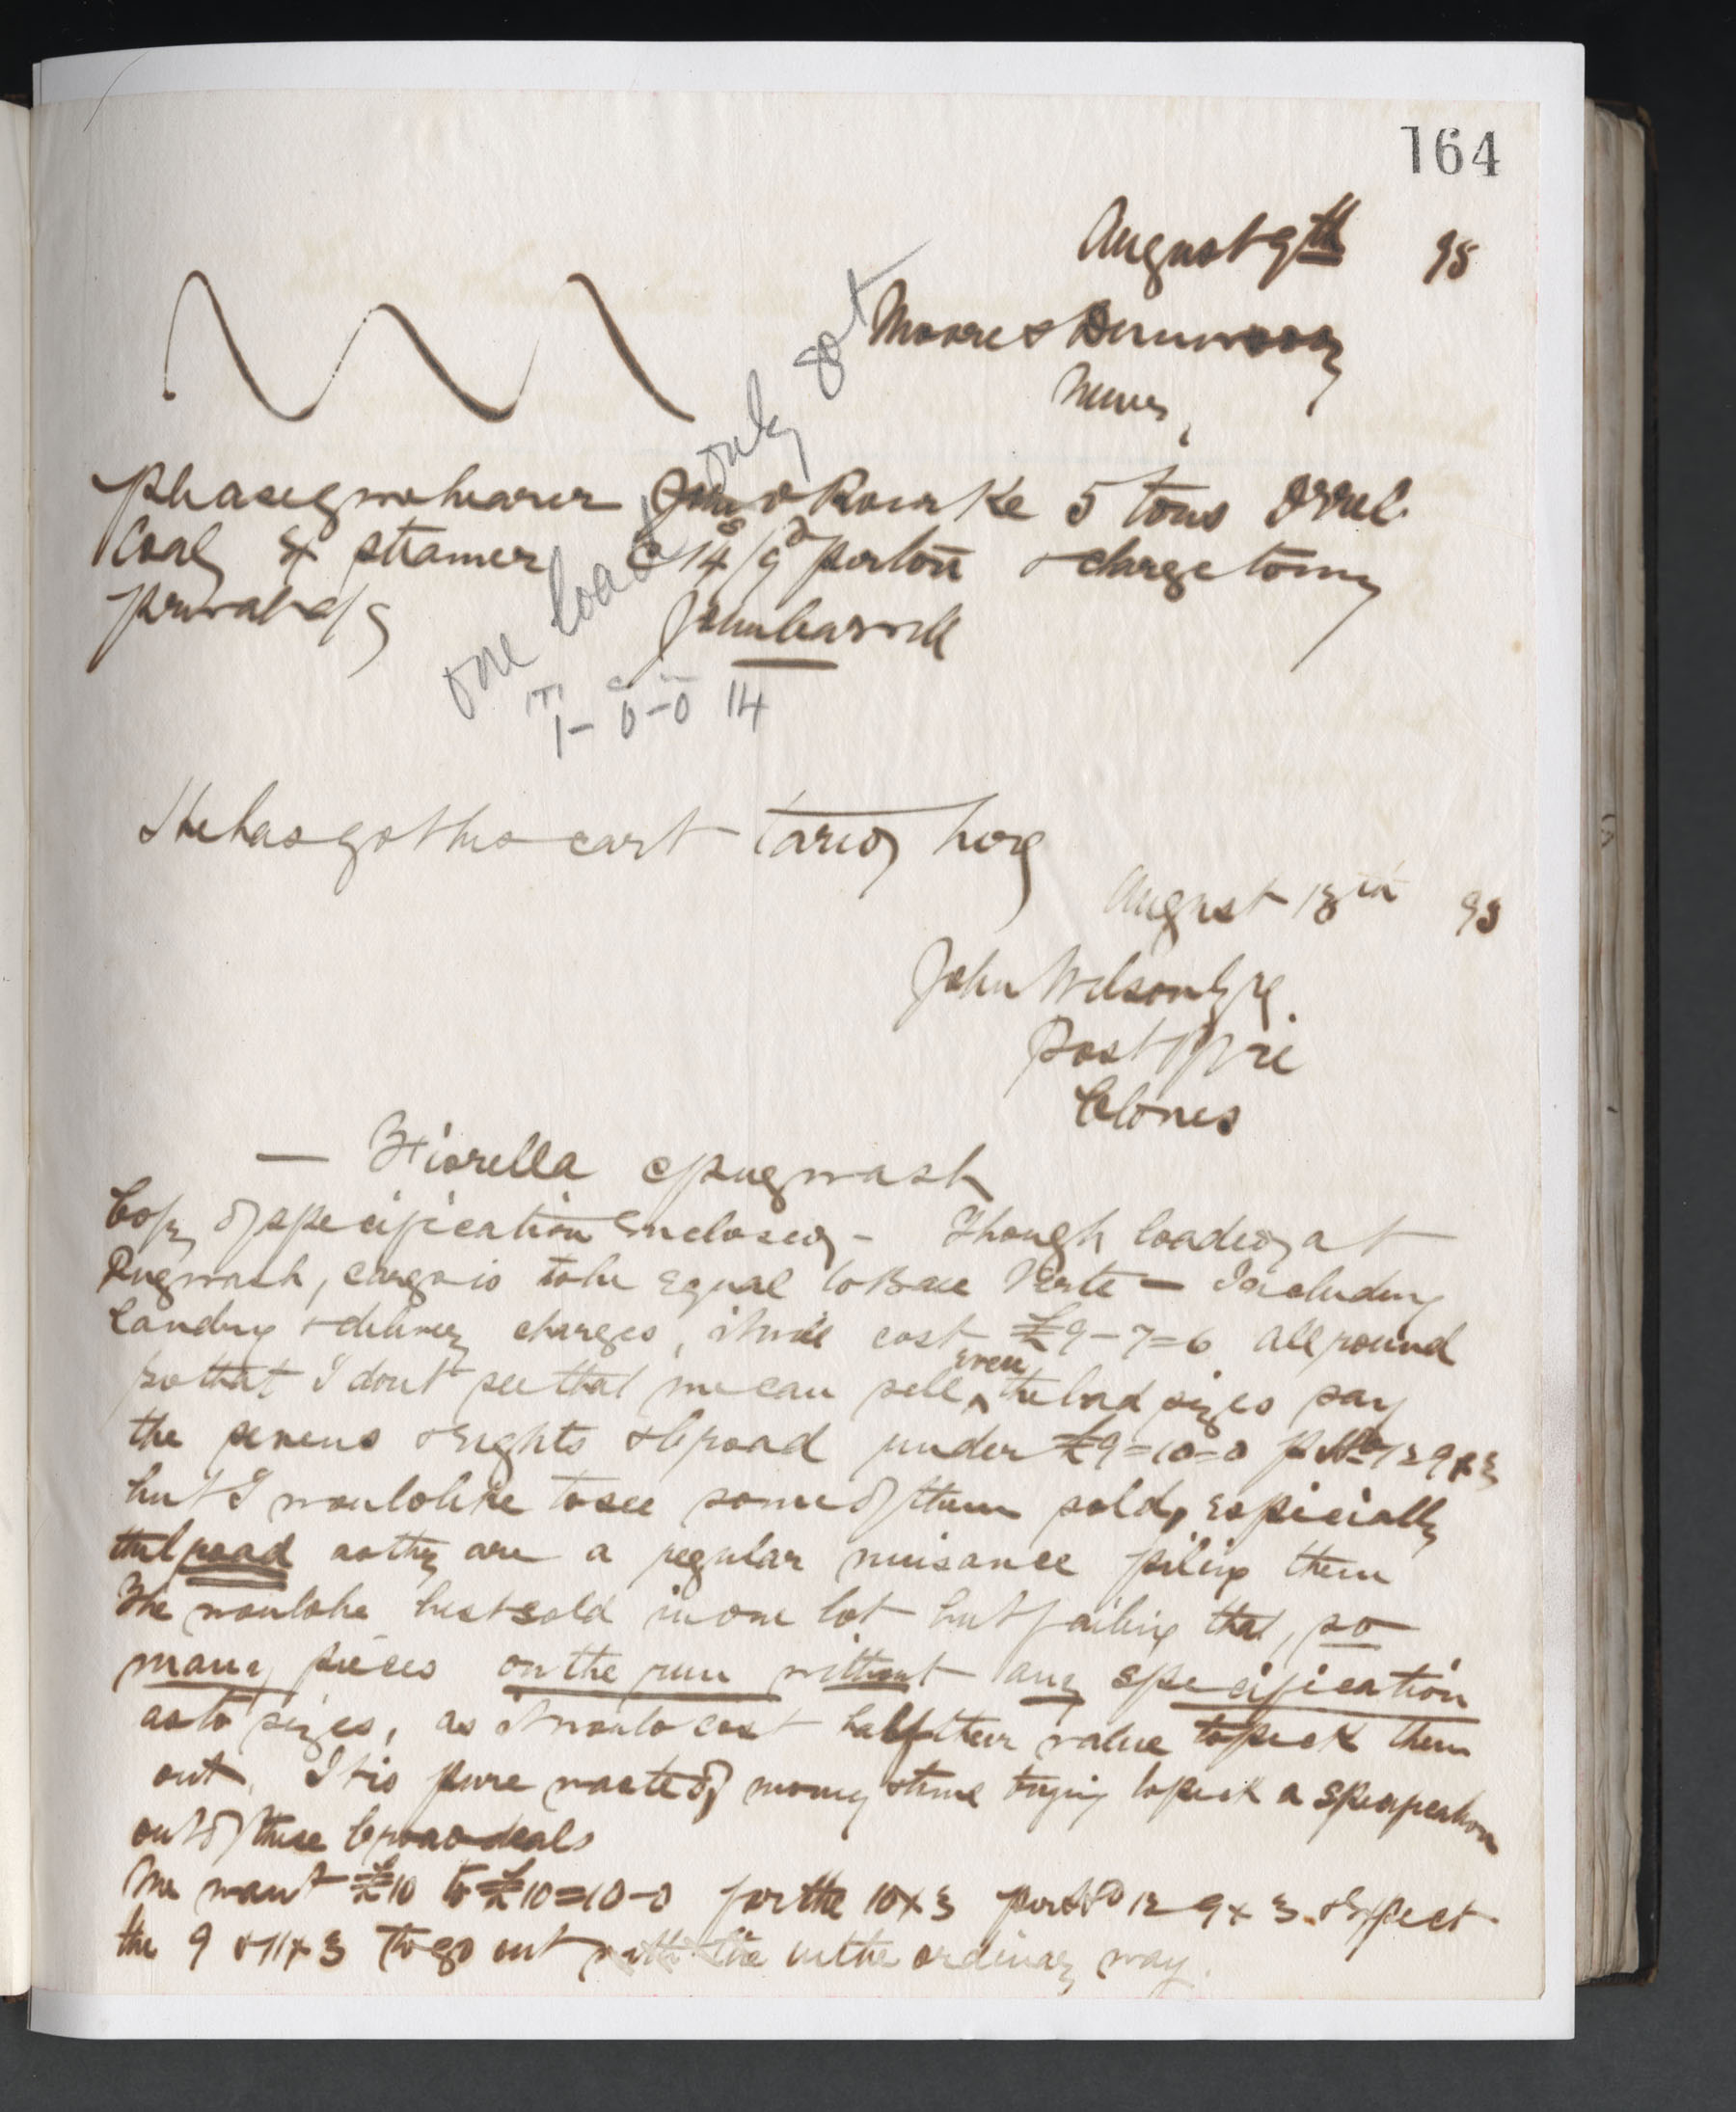 164
August 9th 98
Moore & Dunwoody
Newry
Please give bearer John O Rourke 5 tons
Coal ex steamer @ 14s/9d per ton & charge to my
private a/c
John Carvill
one load only got
T c
1 - 0 - 0 14
He has got his cart tared here
August 13th 98
John Wilson Esqre
Post Office
Clones
— Fiorella @ Pugwash
Copy of specification Enclosed - Though loaded at
Pugwash, cargo is to be Equal to Baie Verte — Including
Landing & delivery charges, it will cost £9-7=6 all round
so that I dont see that we can sell even the bad sizes say
the sevens & Eights & broad under £9=10=0 p 12 9 x 3
but I would like to see some of them sold, Especially
the broad as they are a regular nuisance piling them
The would be best sold in one lot but failing that, so
many pieces on the run without any specification
as to sizes, as it would cost half their value to pick them
out. It is pure waste of money & time trying to pick a specification
out of these broad deals
We want £10 to £10=10-0 for the 10 x 3 per 12 9 x 3. & Expect
the 9 & 11 x 3 to go out in the ordinary way.